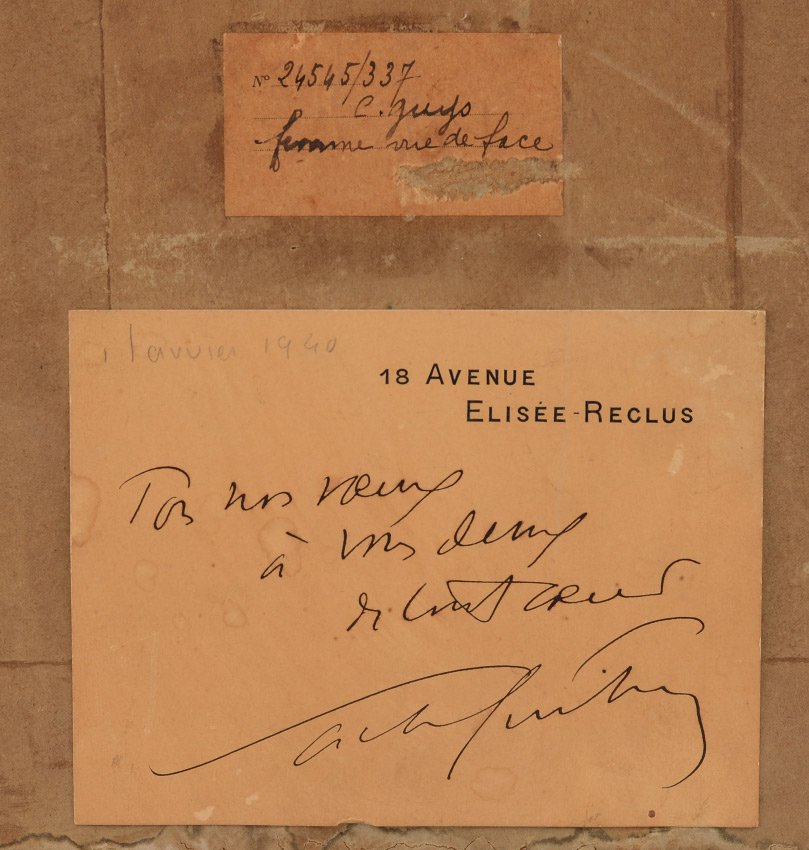 N° 24545/337
C. Guys
femme vue de face
1 Janvier 1940
18 AVENUE
ELISÉE-RECLUS
Tous nos vœux
à vous deux
de tout cœur
Sacha Guitry